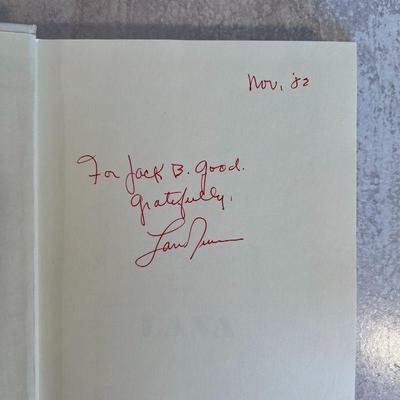 Nov, '82
For Jack B. Good.
Gratefully,